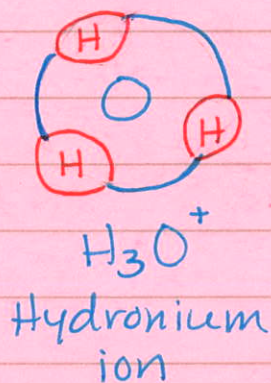 H
O
H
H
H₃O⁺
Hydronium
ion